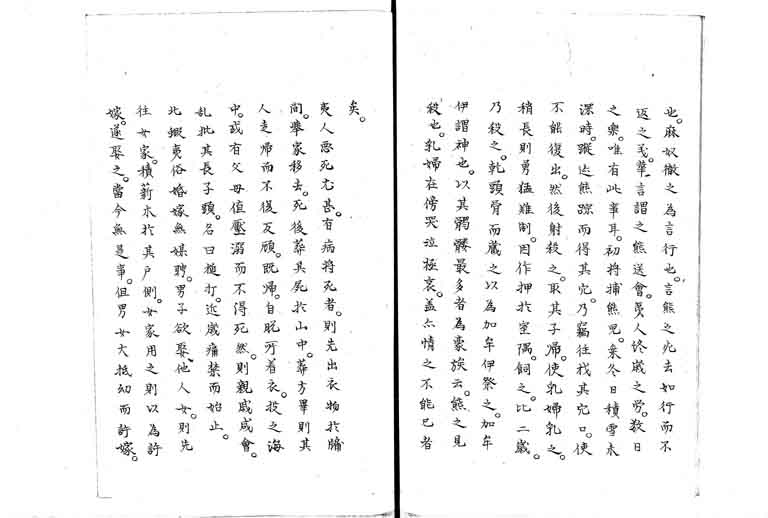 也。麻奴徹之為言行也。言熊之死去如行而不
返之義。華言謂之熊送會。夷人終歲之勞。數日
之樂。唯有此事耳。初將捕熊兒。乘冬日積雪未
深時。蹤跡熊蹤而得其穴。乃竊往戕其穴口。使
不能復出。然後射殺之。取其子歸。使乳婦乳之。
稍長則勇猛難制。因作押於室隅。飼之。比二歲。
乃殺之。乾頭骨而藏之以為加牟伊祭之。加牟
伊謂神也。以其髑髏最多者為豪族云。熊之見
殺也。乳婦在傍哭泣極哀。蓋亦情之不能已者
矣。
夷人惡死尤甚。有病將死者。則先出衣物於牖
間。舉家移去。死後葬其尻於山中。葬方畢則其
人走歸而不復反顧。既歸。自脫所着衣。投之海
中。或有父母值壓溺而不得死然。則親戚咸會。
乱批其長子頭。名曰槌打。近歲痛禁而始止。
北蝦夷俗婚嫁無媒聘。男子欲娶他人女。則先
往女家。積薪木於其戶側。女家用之則以為許
嫁。遂娶之。當今無是事。但男女大抵幼而許嫁。